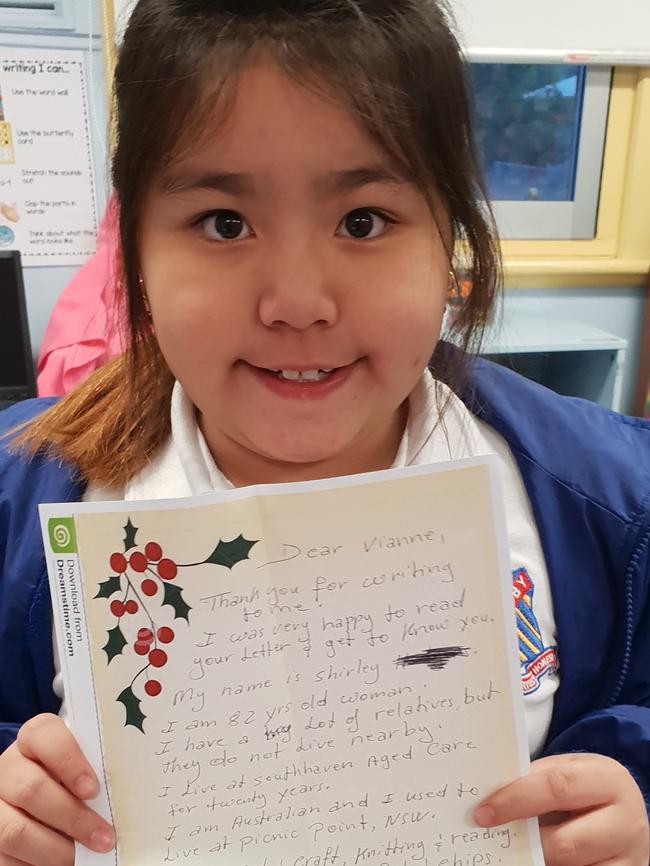 writing I can...
Use the word wall
Use the butterfly
card
Stretch the sounds
out
Clap the parts in
words
Think about what the
word looks like
Download from
Dreamstime.com
Dear Vianne,
Thank you for writing
to me!
I was very happy to read
your letter & get to know you.
My name is shirley
I am 82 yrs old woman.
I have a Lot of relatives, but
they do not live nearby.
I Live at Southhaven Aged Care
for twenty years.
I am Australian and I used to
Live at Picnic Point, NSW.
craft, knitting & reading.
BY